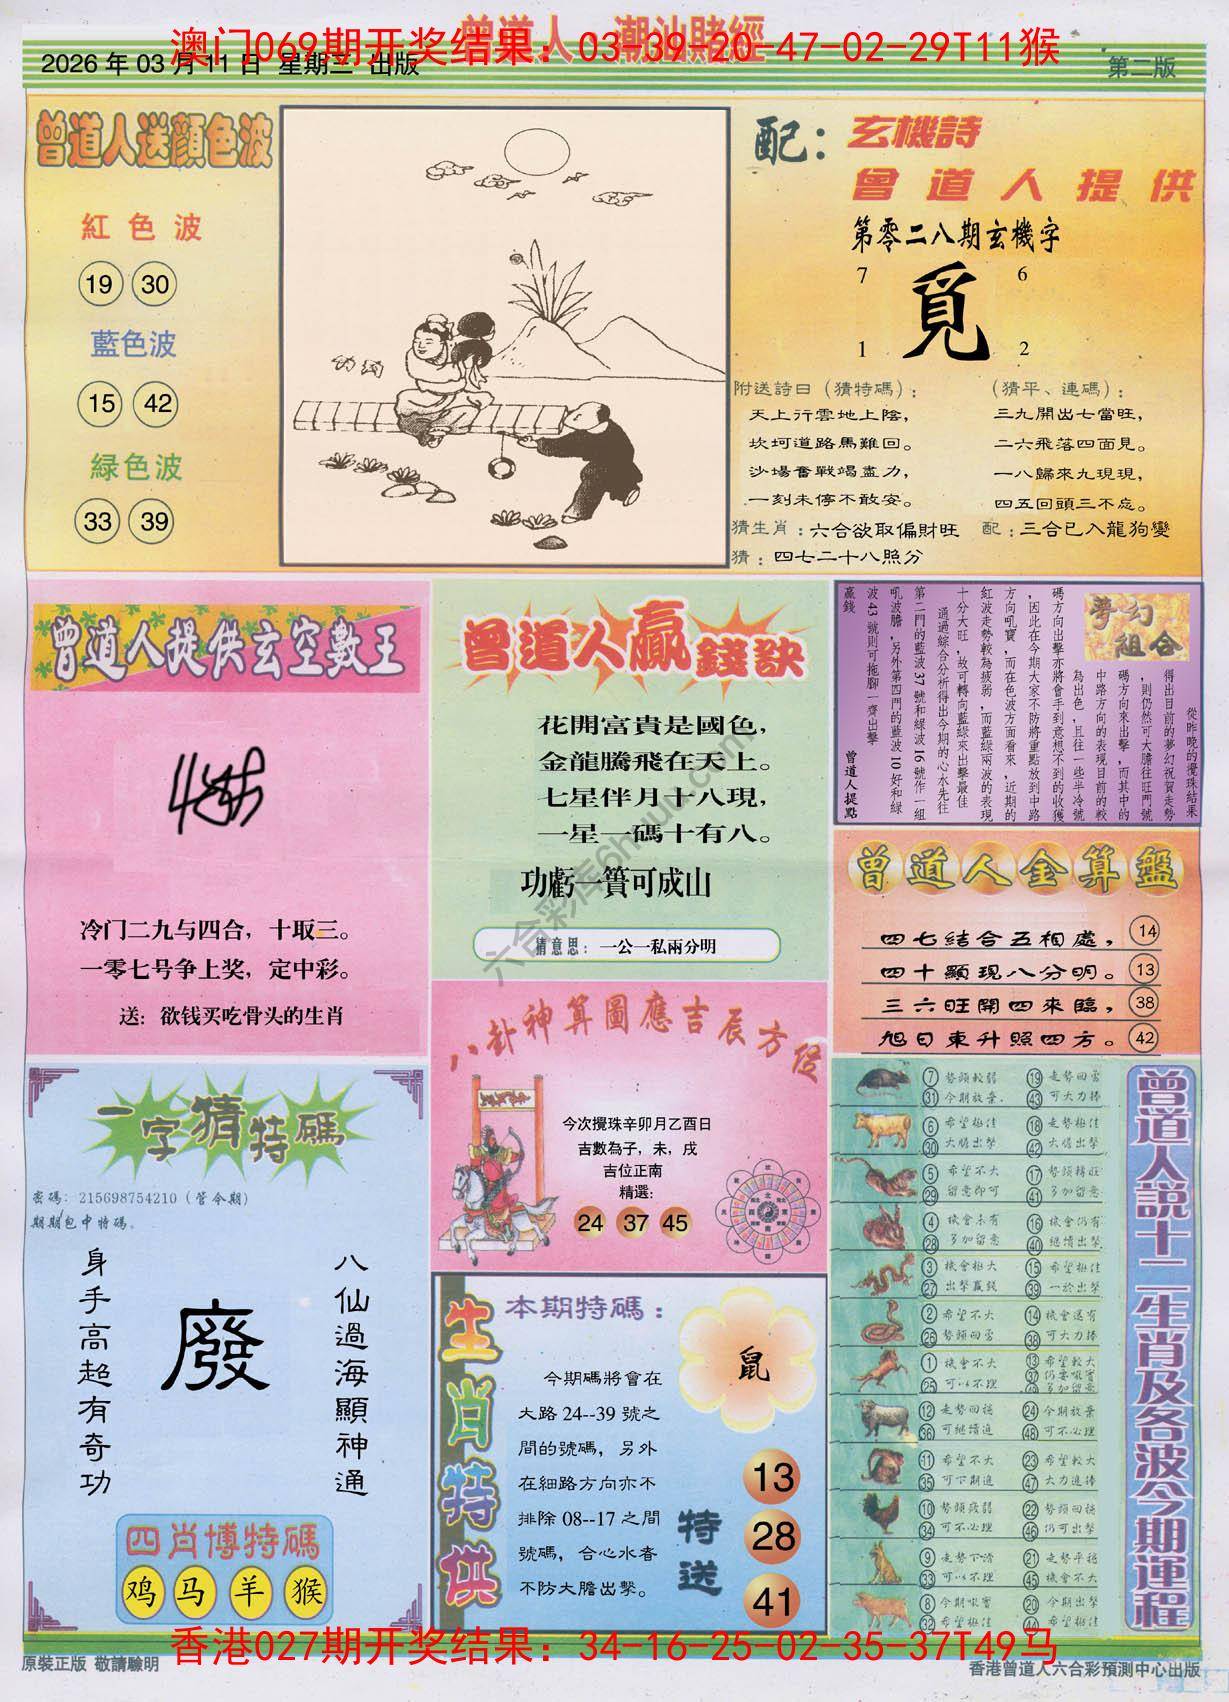 曾道人、潮汕賭經
澳门069期开奖结果：03-39-20-47-02-29T11猴
2026 年 03 月 11 日 星期三 出版
第二版
曾道人送顔色波
紅色波
19 30
藍色波
15 42
緑色波
33 39
配：
玄機詩
曾道人提供
第零二八期玄機字
7 6
覓
1 2
附送詩曰（猜特碼）：
天上行雲地上陰，
坎坷道路馬難回。
沙場奮戰竭盡力，
一刻未停不敢安。
（猜平、連碼）：
三九開出七當旺，
二六飛落四面見。
一八歸來九現現，
四五回頭三不忘。
猜生肖：六合欲取偏財旺
配：三合已入龍狗變
猜：四七二十八照分
曾道人提供玄空數王
冷门二九与四合，十取三。
一零七号争上奖，定中彩。
送：欲钱买吃骨头的生肖
曾道人贏錢訣
花開富貴是國色，
金龍騰飛在天上。
七星伴月十八現，
一星一碼十有八。
功虧一簣可成山
猜意思：一公一私兩分明
夢幻組合
從昨晚的攪珠結果
得出目前的夢幻祝賀走勢
，則仍然可大膽往旺門號
碼方向來出擊，而其中的
中路方向的表現目前的較
為出色，且往一些半冷號
碼方向出擊亦將會手到意想不到的收獲
，因此在今期大家不防將重點放到中路
方向吼寶，而在色波方面看來，近期的
紅波走勢較為疲弱，而藍綠兩波的表現
十分大旺，故可轉向藍綠來出擊最佳
通過綜合分析得出今期的心水先往
第二門的藍波37號和綠波16號作一組
吼波膽，另外第四門的藍波10好和綠
波43號則可拖腳一齊出擊
贏錢
曾道人提點
曾道人金算盤
四七結合五相處，14
四十顯現八分明。13
三六旺開四來臨，38
旭日東升照四方。42
八卦神算圖應吉辰方位
今次攪珠辛卯月乙酉日
吉數為子，未，戌
吉位正南
精選：
24 37 45
一字猜特碼
密碼：215698754210（管今期）
期期包中特碼。
八仙過海顯神通
廢
身手高超有奇功
四肖博特碼
鸡 马 羊 猴
生肖特供
本期特碼：
鼠
今期碼將會在
大路 24--39 號之
間的號碼，另外
在細路方向亦不
排除 08--17 之間
號碼，合心水者
不防大膽出擊。
特送
13
28
41
曾道人説十二生肖及各波今期運程
7 31 勢頭較弱 今期放棄.
19 43 走勢回雲 可大力捧
6 30 希望極佳 大膽出擊
18 42 走勢極佳 大膽出擊
5 29 希望不大 留意即可
17 41 勢頭轉旺 多加留意
4 28 機會未有 多加留意
16 40 機會仍有 繼續出擊
3 27 機會極大 出擊贏錢
15 39 希望極佳 一於出擊
2 26 希望不大 勢頭回雲
14 38 機會還有 可大力捧
1 25 機會不大 可以不理
13 37 49 希望較大 仍要吼寶 多加留意
12 36 走勢回穩 可繼續追
24 48 今期放棄 可不必理
11 35 希望不大 可下期追
23 47 希望較大 大力追捧
10 34 勢頭致弱 可不必理
22 46 勢頭回穩 仍可出擊
9 33 走勢下滑 可以不理
21 45 走勢平穩 機會不大
8 32 今期吼寶 希望極佳
20 44 今期出擊 希望極佳
六合彩库6huu.com
香港027期开奖结果：34-16-25-02-35-37T49马
原裝正版 敬請驗明
香港曾道人六合彩預測中心出版